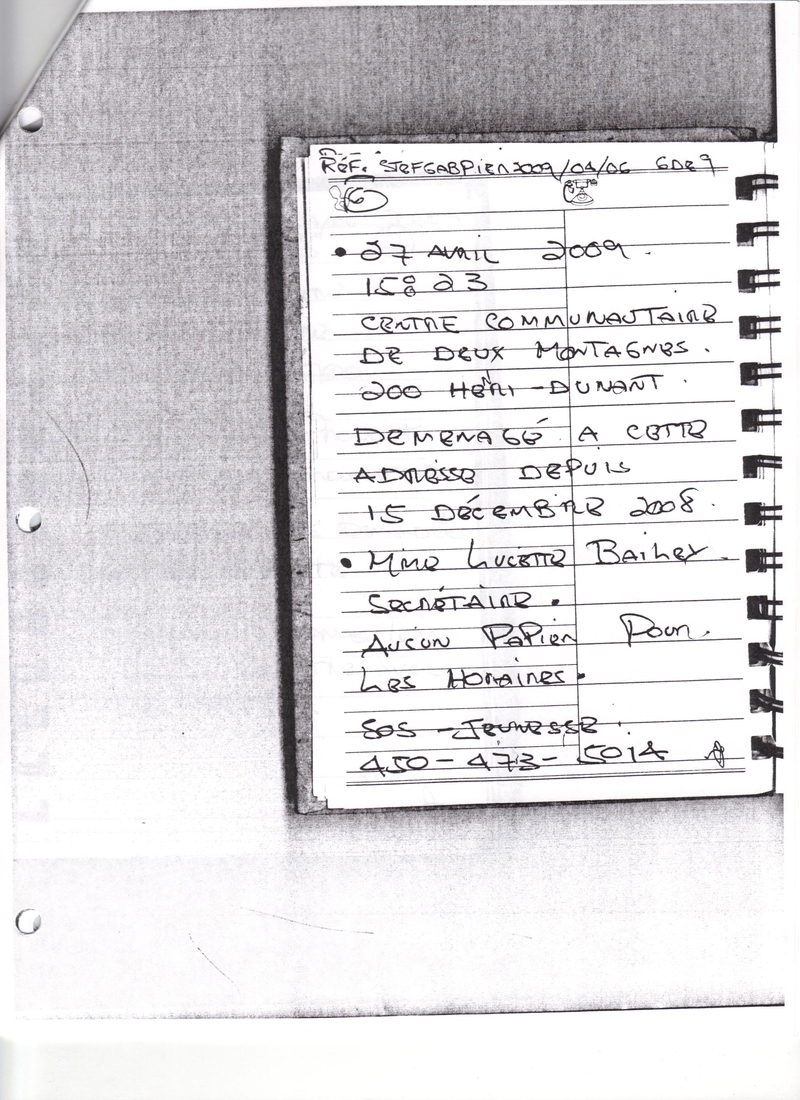 RÉF. STEFGABPIER2009/04/06 6 DE 9
6
• 27 AVRIL 2009.
15:23
CENTRE COMMUNAUTAIRE
DE DEUX MONTAGNES.
200 HENRI-DUNANT.
DEMENAGÉ A CETTE
ADRESSE DEPUIS
15 DÉCEMBRE 2008.
• MME LUCETTE BAILEY.
SECRÉTAIRE.
AUCUN PAPIER POUR.
LES HORAIRES.
SOS-JEUNESSE.
450-473-5014